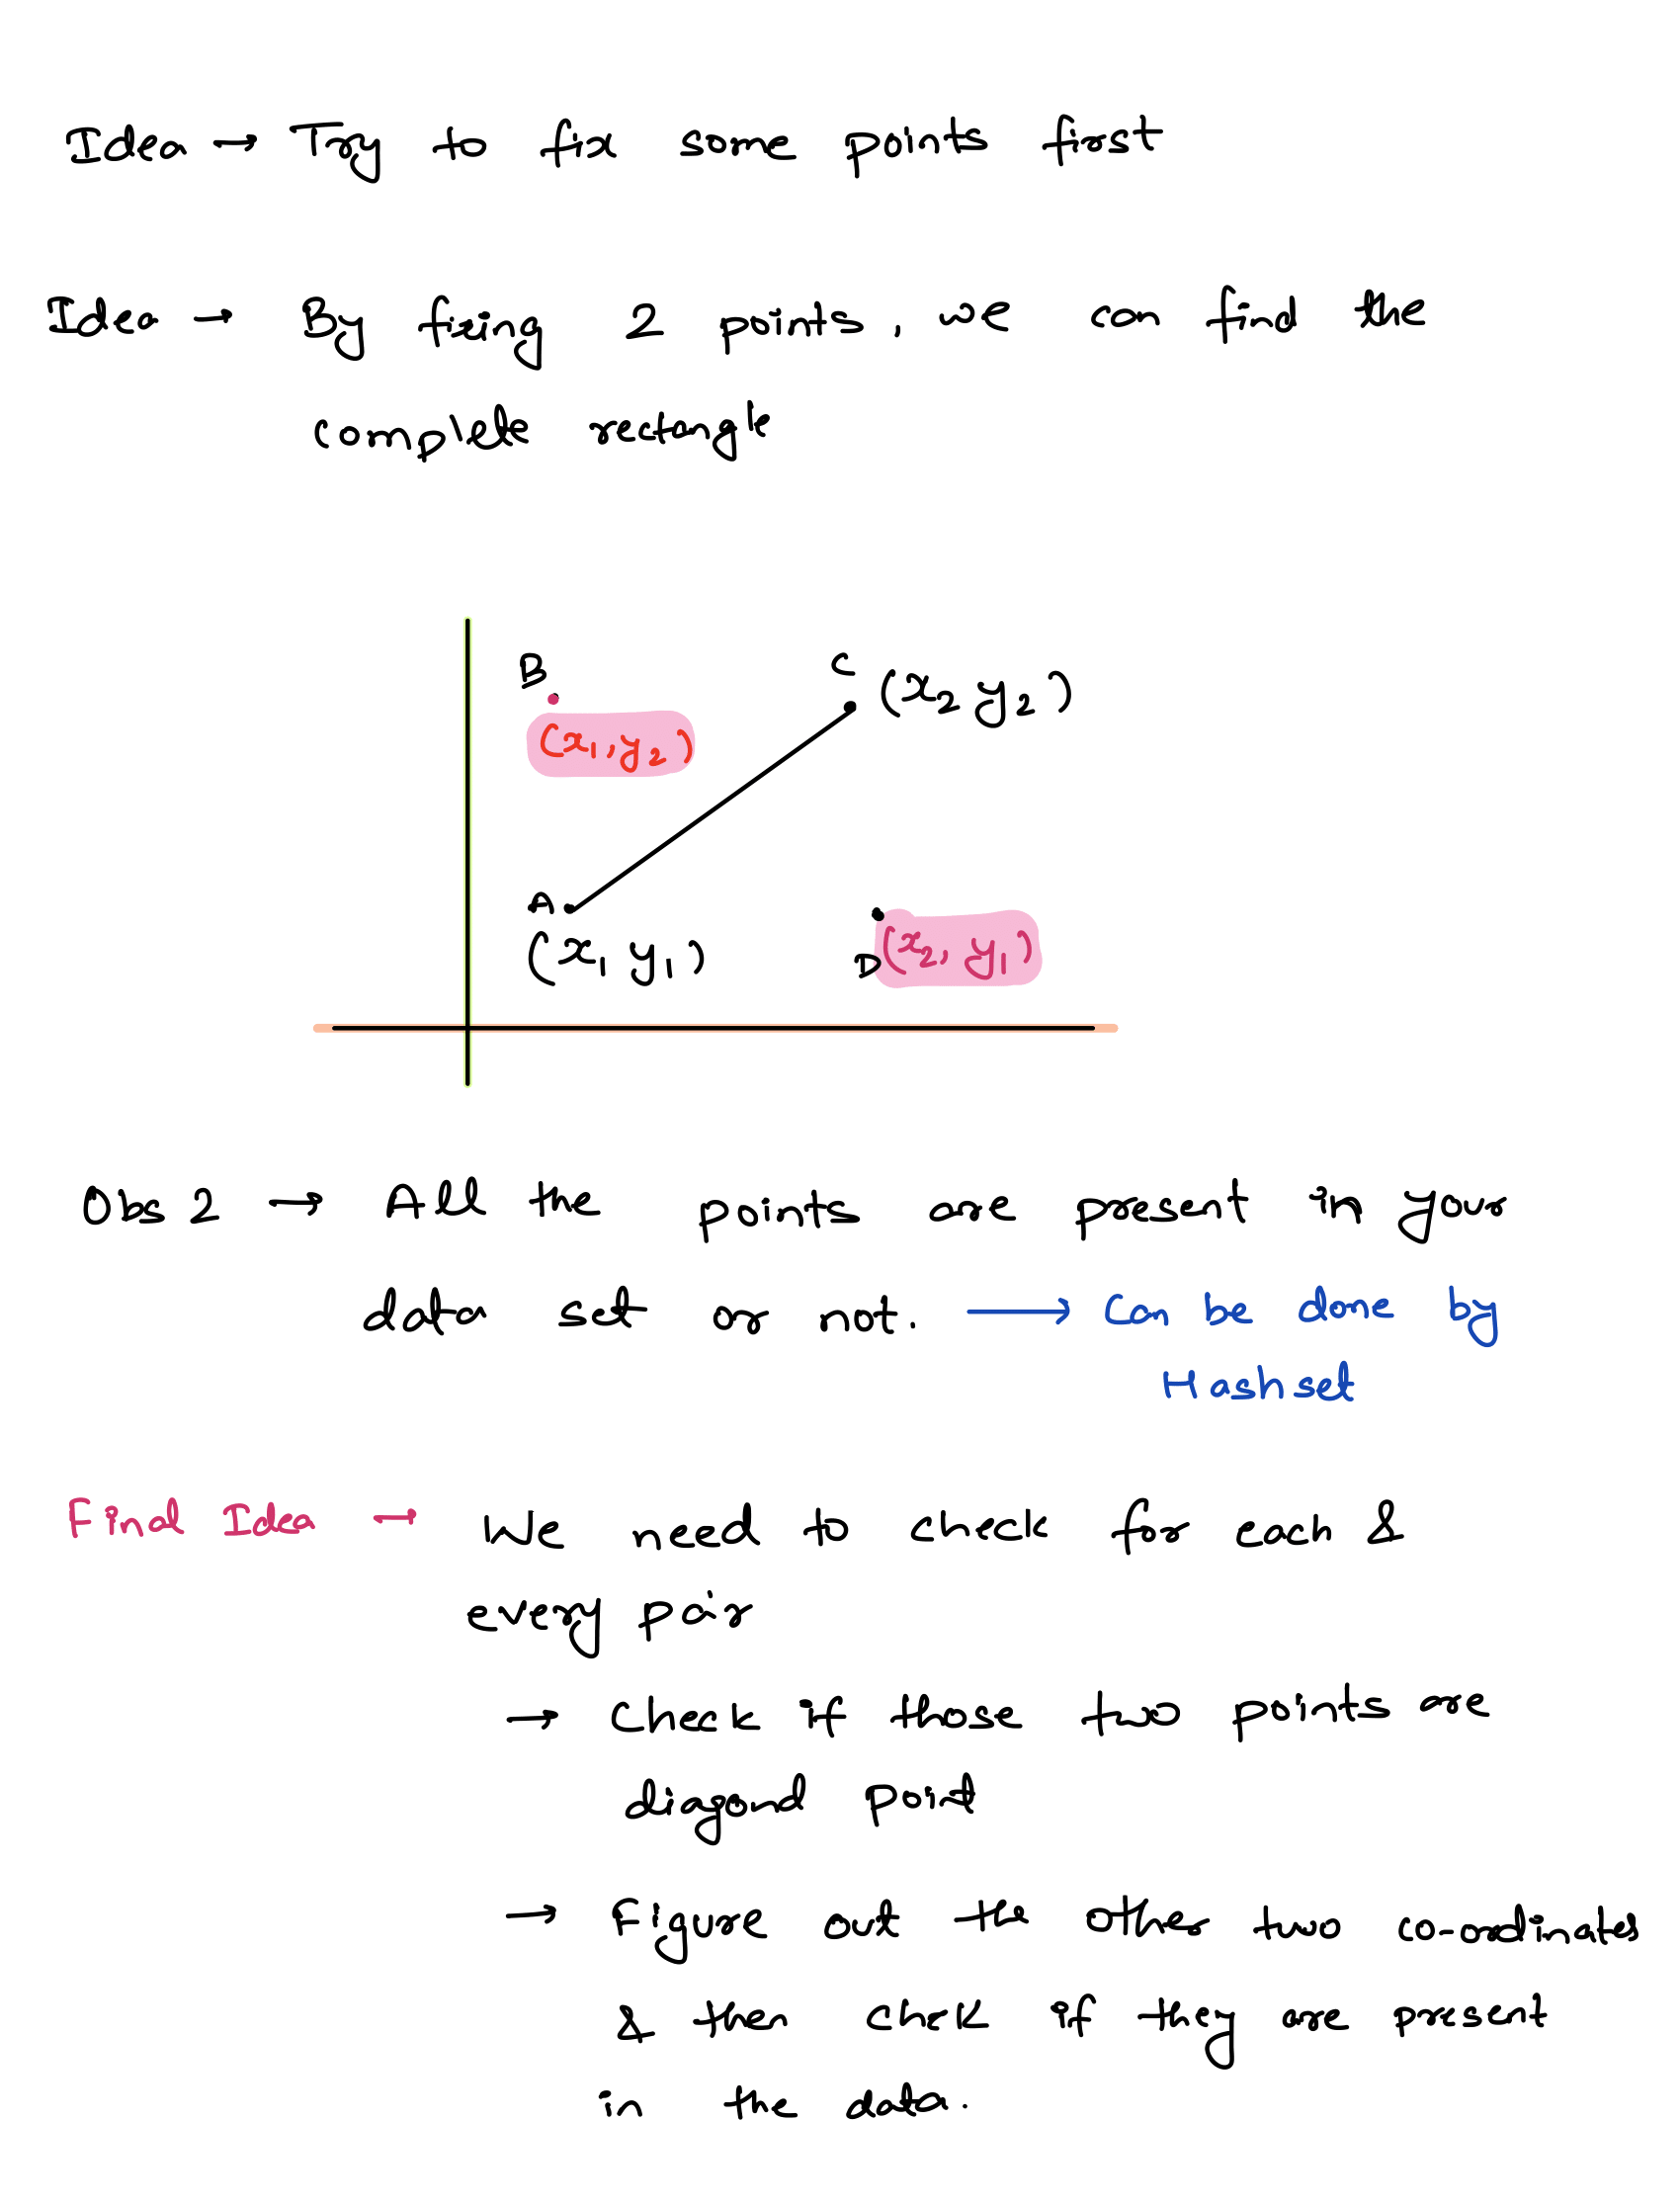 Idea → Try to fix some points first
Idea → By fixing 2 points, we can find the
complete rectangle
B
C
(x₂ y₂)
(x₁, y₂)
A
(x₁ y₁)
D
(x₂, y₁)
Obs 2 → All the points are present in your
data set or not. → Can be done by
Hashset
Final Idea → We need to check for each &
every pair
→ Check if those two points are
diagonal point
→ Figure out the other two co-ordinates
& then check if they are present
in the data.